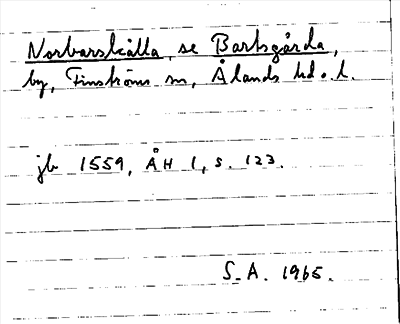 Norbarskälla, se Bartsgårda,
by, Finströms sn, Ålands hd o. l.
jb 1559, ÅH 1, s. 123.
S.A. 1965.